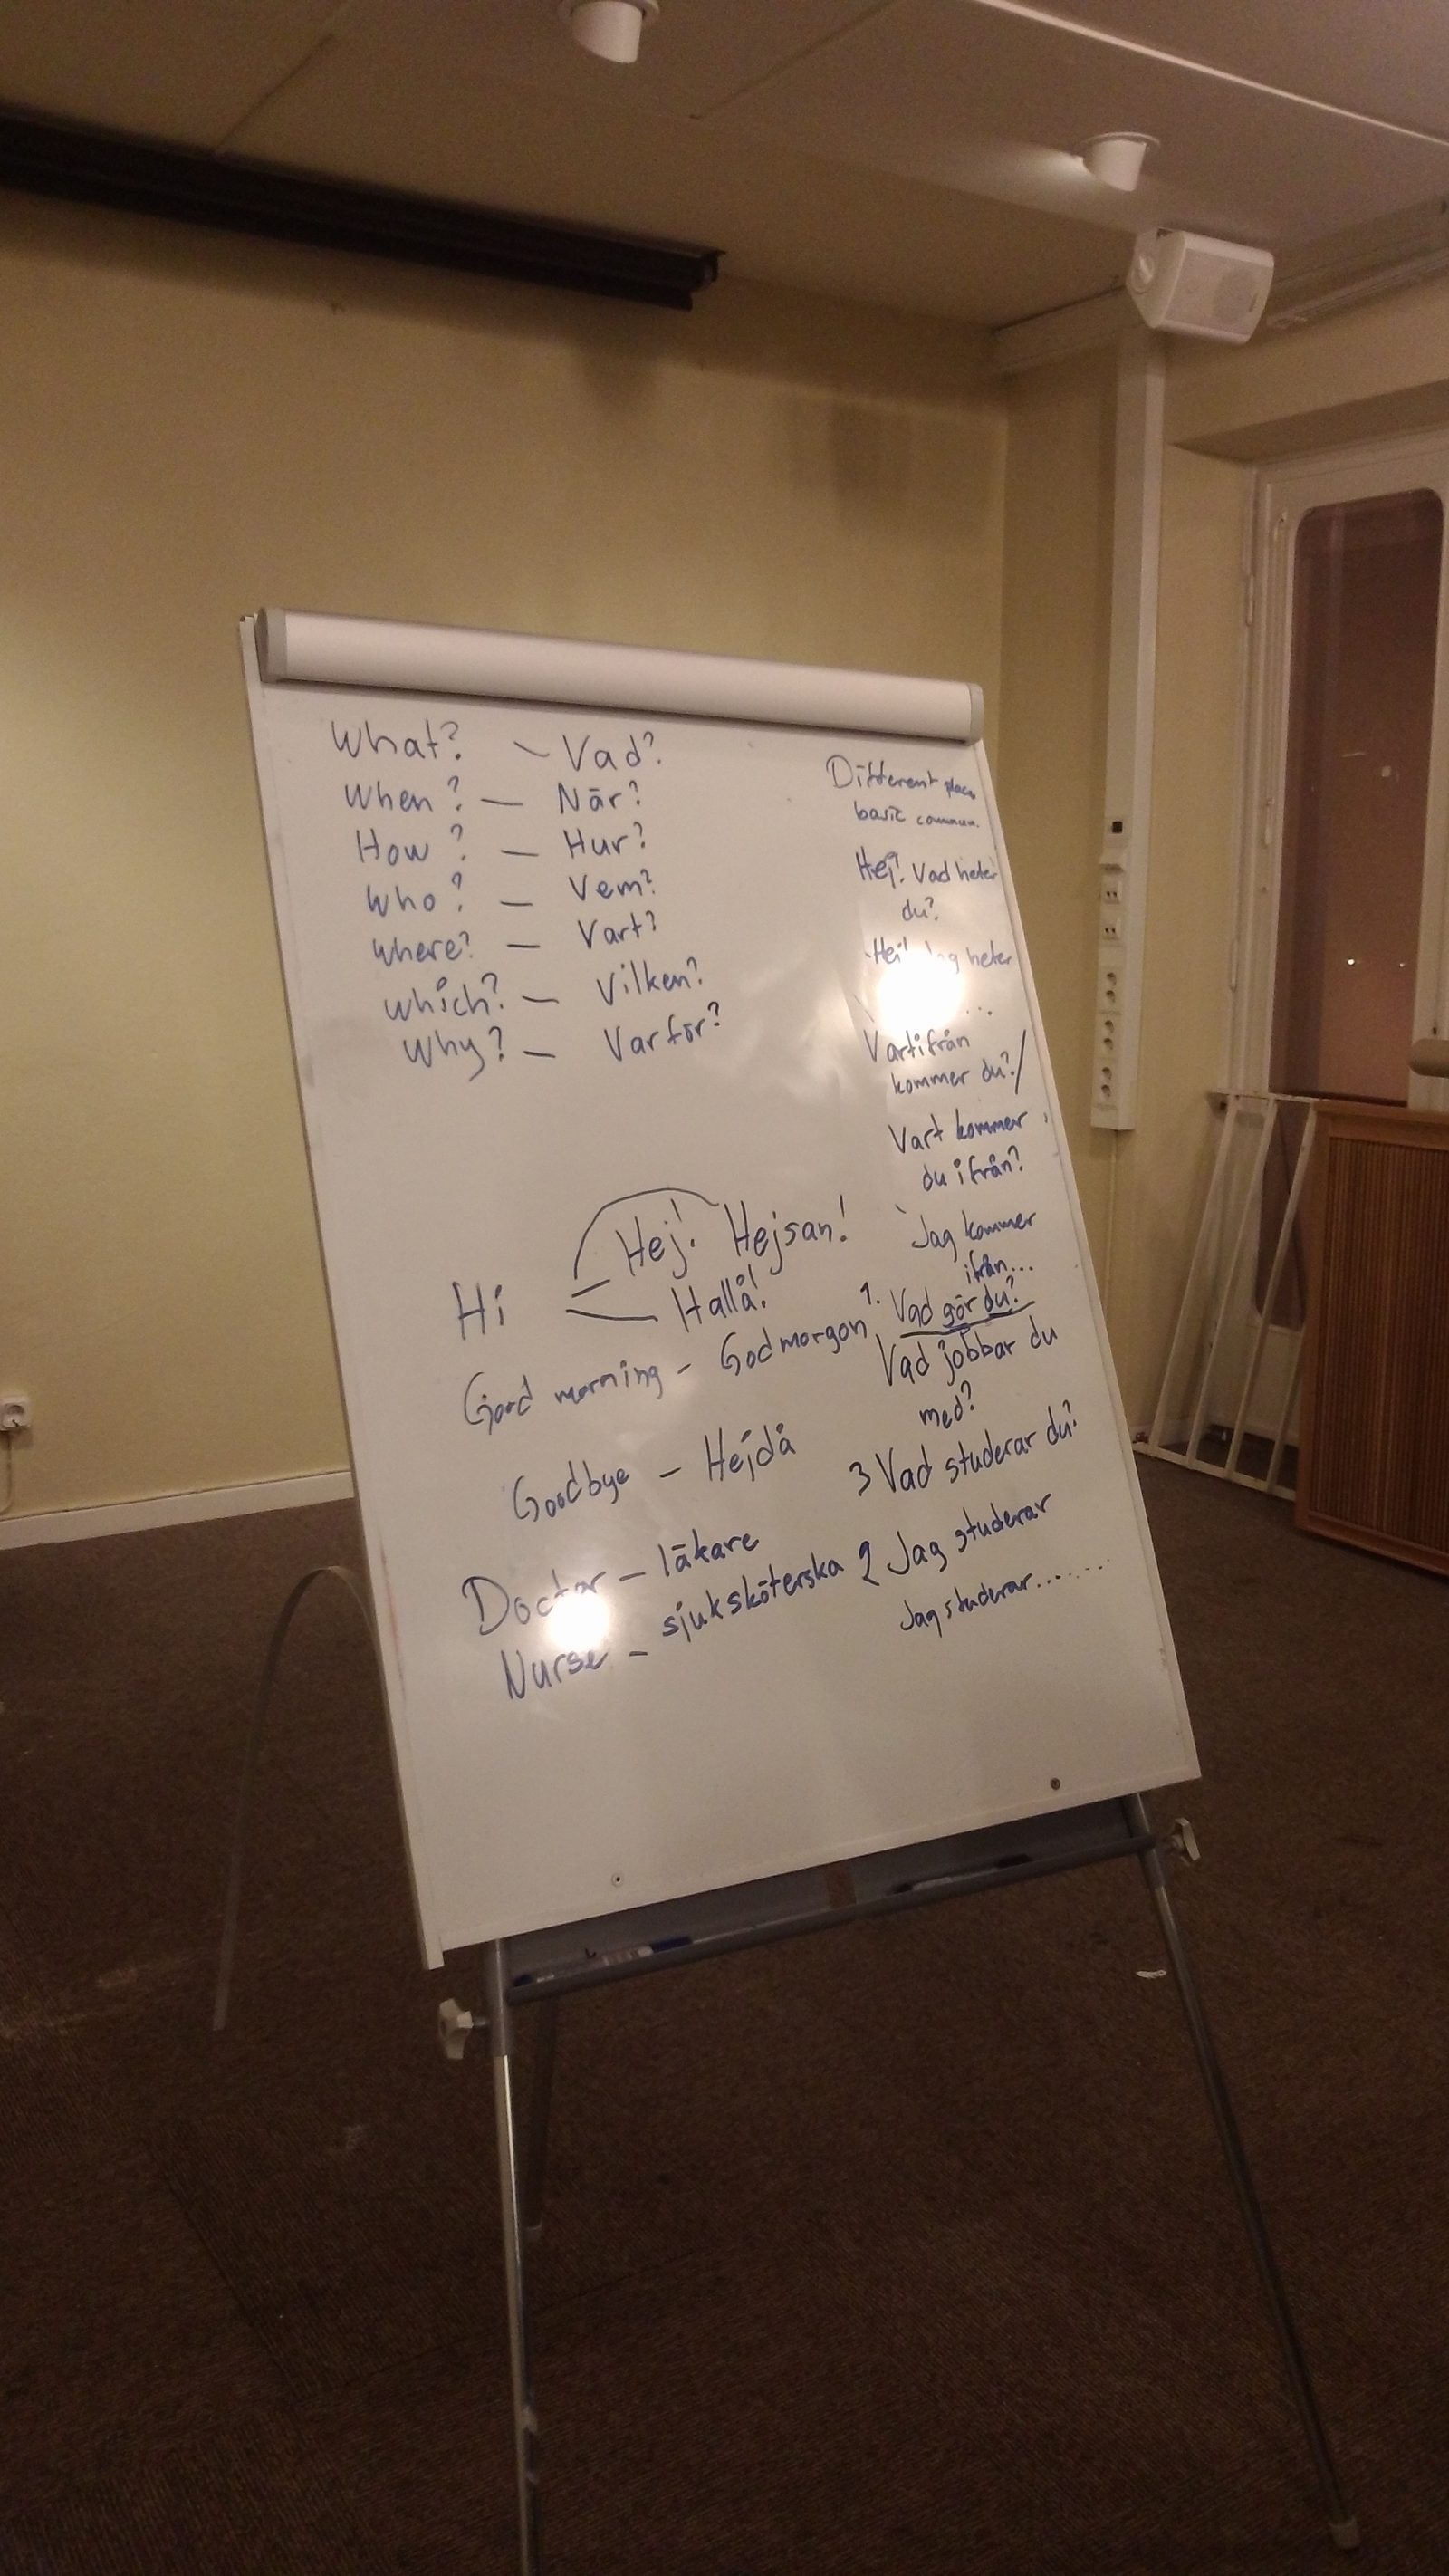 What? – Vad?
When? – När?
How? – Hur?
Who? – Vem?
Where? – Vart?
Which? – Vilken?
Why? – Varför?
Hi
Hej! Hejsan!
Hallå!
Good morning – Godmorgon
Goodbye – Hejdå
Doctor – läkare
Nurse – sjuksköterska
Different
basic commun.
Hej! Vad heter
du?
Hej! Jag heter
...
Vartifrån
kommer du?/
Vart kommer
du ifrån?
Jag kommer
ifrån...
1. Vad gör du?
Vad jobbar du
med?
3 Vad studerar du?
2 Jag studerar
Jag studerar.......